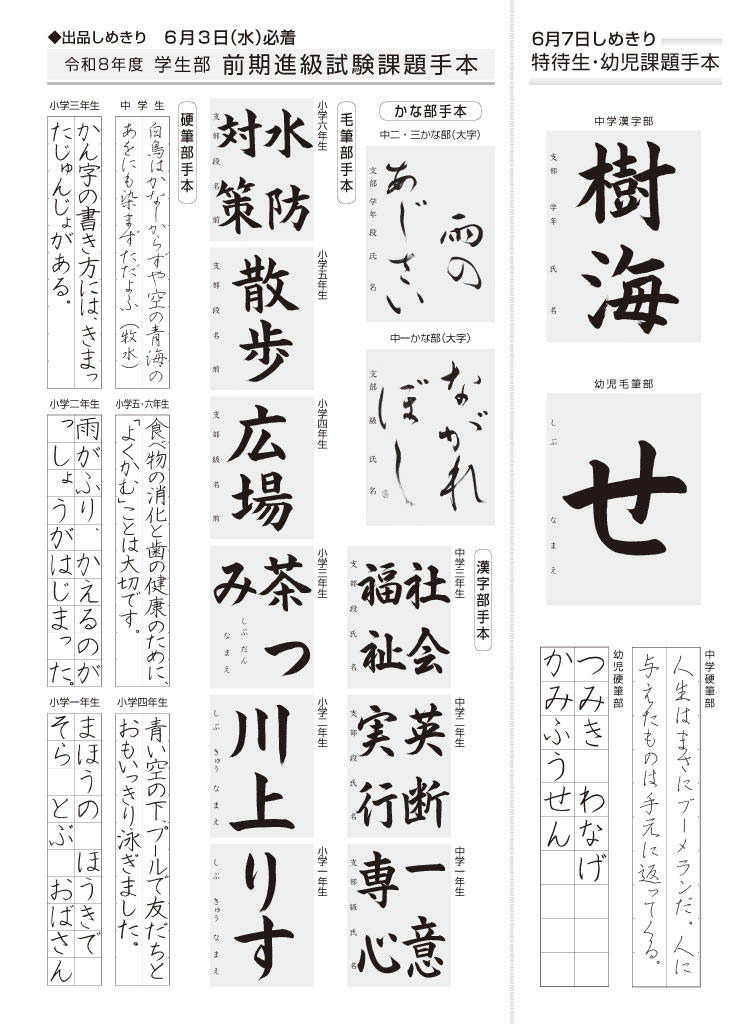 ◆出品しめきり　6月3日(水)必着
令和8年度 学生部 前期進級試験課題手本
かな部手本
中二・三かな部(大字)
雨の
あじさい
支部 学年 段 氏名
中一かな部(大字)
ながれ
ぼし
支部 級 氏名
毛筆部手本
小学六年生
水防
対策
支部 段 名前
小学五年生
散歩
支部 段 名前
小学四年生
広場
支部 級 名前
小学三年生
茶つ
み
しぶ だん
なまえ
小学二年生
川上
しぶ きゅう なまえ
小学一年生
りす
しぶ きゅう なまえ
漢字部手本
中学三年生
社会
福祉
支部 段 氏名
中学二年生
英断
実行
支部 段 氏名
中学一年生
一意
専心
支部 級 氏名
硬筆部手本
中学生
白鳥はかなしからずや空の青海の
あをにも染まずただよふ（牧水）
小学五・六年生
食べ物の消化と歯の健康のために、
「よくかむ」ことは大切です。
小学四年生
青い空の下、プールで友だちと
おもいっきり泳ぎました。
小学三年生
かん字の書き方には、きまっ
たじゅんじょがある。
小学二年生
雨がふり、かえるのが
っしょうがはじまった。
小学一年生
まほうの　ほうきで
そら　とぶ　おばさん
6月7日しめきり
特待生・幼児課題手本
中学漢字部
樹海
支部 学年 氏名
幼児毛筆部
せ
しぶ なまえ
中学硬筆部
人生はまさにブーメランだ。人に
与えたものは手元に返ってくる。
幼児硬筆部
つみき　わなげ
かみふうせん